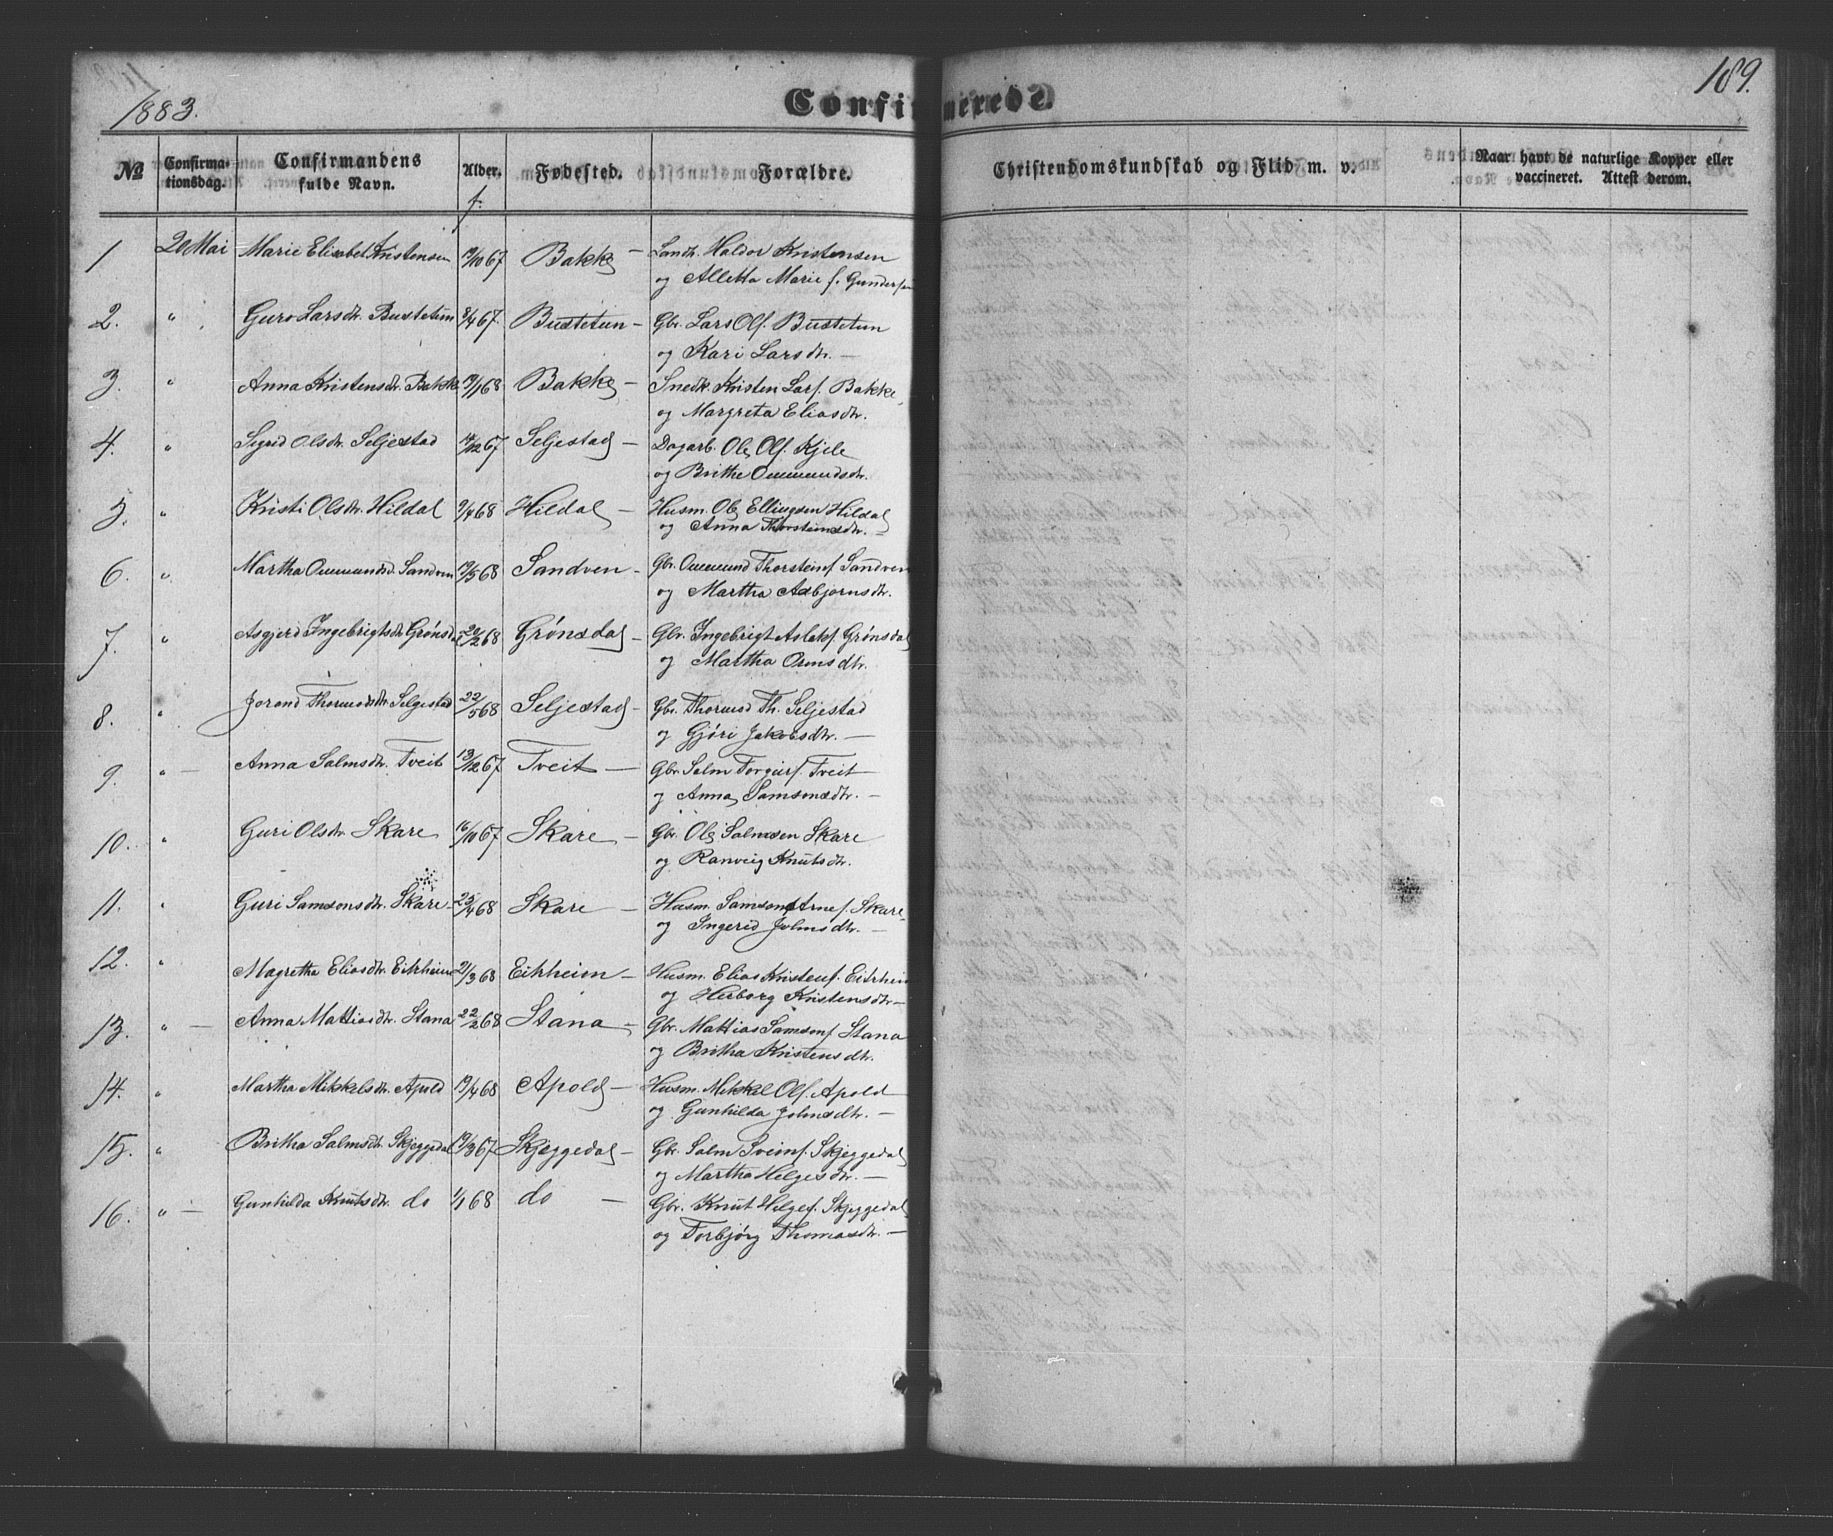 1883.
Confirmerede.
189.
No
Confirma-
tionsdag.
Confirmandens
fulde Navn.
Alder.
f.
Fødested.
Forældre.
Christendomskundskab og Flid m. v.
Naar havt de naturlige Kopper eller
vaccineret. Attest derom.
1 20 Mai Marie Elisabet Kristensen 19/10 67 Bakke – Landh. Haldor Kristensen
og Alletta Marie f. Gundersen
2. " Guro Larsdtr. Bustetun 8/4 67. Bustetun – Gbr. Lars Ols. Bustetun
og Kari Larsdtr. –
3. " Anna Kristensdtr. Bakke 19/1 68 Bakke – Snedk. Kristen Lars. Bakke,
og Margreta Eliasdtr.
4. " Sigrid Olsdtr. Seljestad 14/12 67 Seljestad – Dagarb. Ole Ols. Kjele
og Brithe Ommundsdtr.
5. " Kristi Olsdtr. Hildal 9/4 68 Hildal – Husm. Ole Ellingsen Hildal
og Anna Thorsteinsdtr. –
6. " Martha Ommundsd. Sandven 19/5 68 Sandven – Gbr. Ommund Thorsteins. Sandven
og Martha Asbjørnsdtr.
7. " Asgjerd Ingebrigtsdtr. Grønsdal 20/2 68 Grønsdal – Gbr. Ingebrigt Aslaks. Grønsdal
og Martha Ormsdtr.
8. " Jorand Thormodsdtr. Selgestad 22/5 68 Seljestad – Gbr. Thormod Th. Seljestad
og Gjøri Jakobsdtr. –
9. " – Anna Salmsdtr. Tveit 13/12 67 Tveit – Gbr. Salm Torgiers. Tveit
og Anna Samsonsdtr. –
10. " Guri Olsdtr. Skare 16/10 67 Skare – Gbr. Ole Salmsen Skare
og Ranveig Knutsdtr.
11. " Guri Samsonsdtr. Skare – 23/4 68 Skare – Husm. Samson Arnes. Skare,
og Ingerid Johnsdtr. –
12. " Magretha Eliasdtr. Eitrheim 21/3 68 Eitrheim – Husm. Elias Kristens. Eitrheim
og Herborg Kristensdtr –
13. " – Anna Mattiasdtr. Stana 22/2 68 Stana – Gbr. Mattias Samsons. Stana
og Britha Kristensdtr.
14. " Martha Mikkelsdtr. Apold 19/4 68 Apold – Husm. Mikkel Ols. Apold
og Gunhilda Johnsdtr. –
15. " Britha Salmsdtr. Skjeggedal 19/3 67 Skjeggedal – Gbr. Salm Sveins. Skjeggedal
og Martha Helgesdtr. –
16. " – Gunhilda Knutsdtr. do 1/1 68 do – Gbr. Knut Helges. Skjeggedal
og Torbjørg Thomasdtr. –